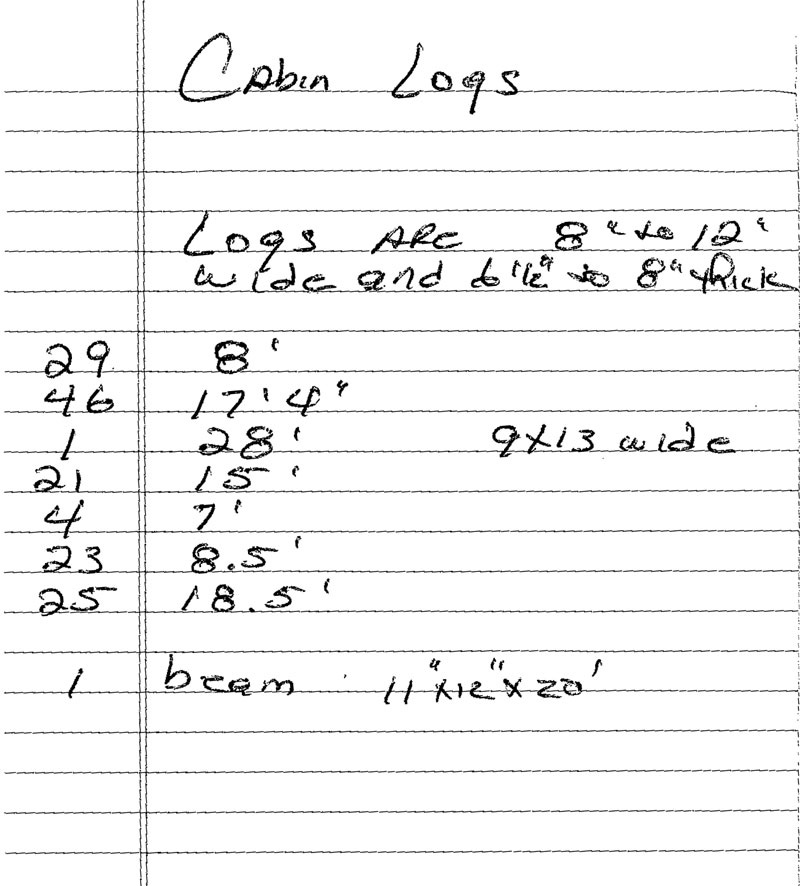 Cabin Logs
Logs ARE 8" to 12"
wide and 6 1/2" to 8" thick
29 8'
46 17'4"
1 28' 9x13 wide
21 15'
4 7'
23 8.5'
25 18.5'
1 beam 11"x12"x20'